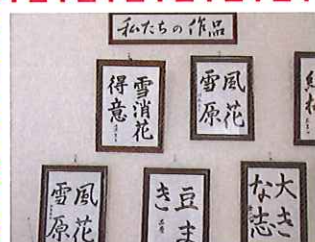 私たちの作品
雪消花
得意
風花
雪原
風花
雪原
豆ま
き
大き
な志